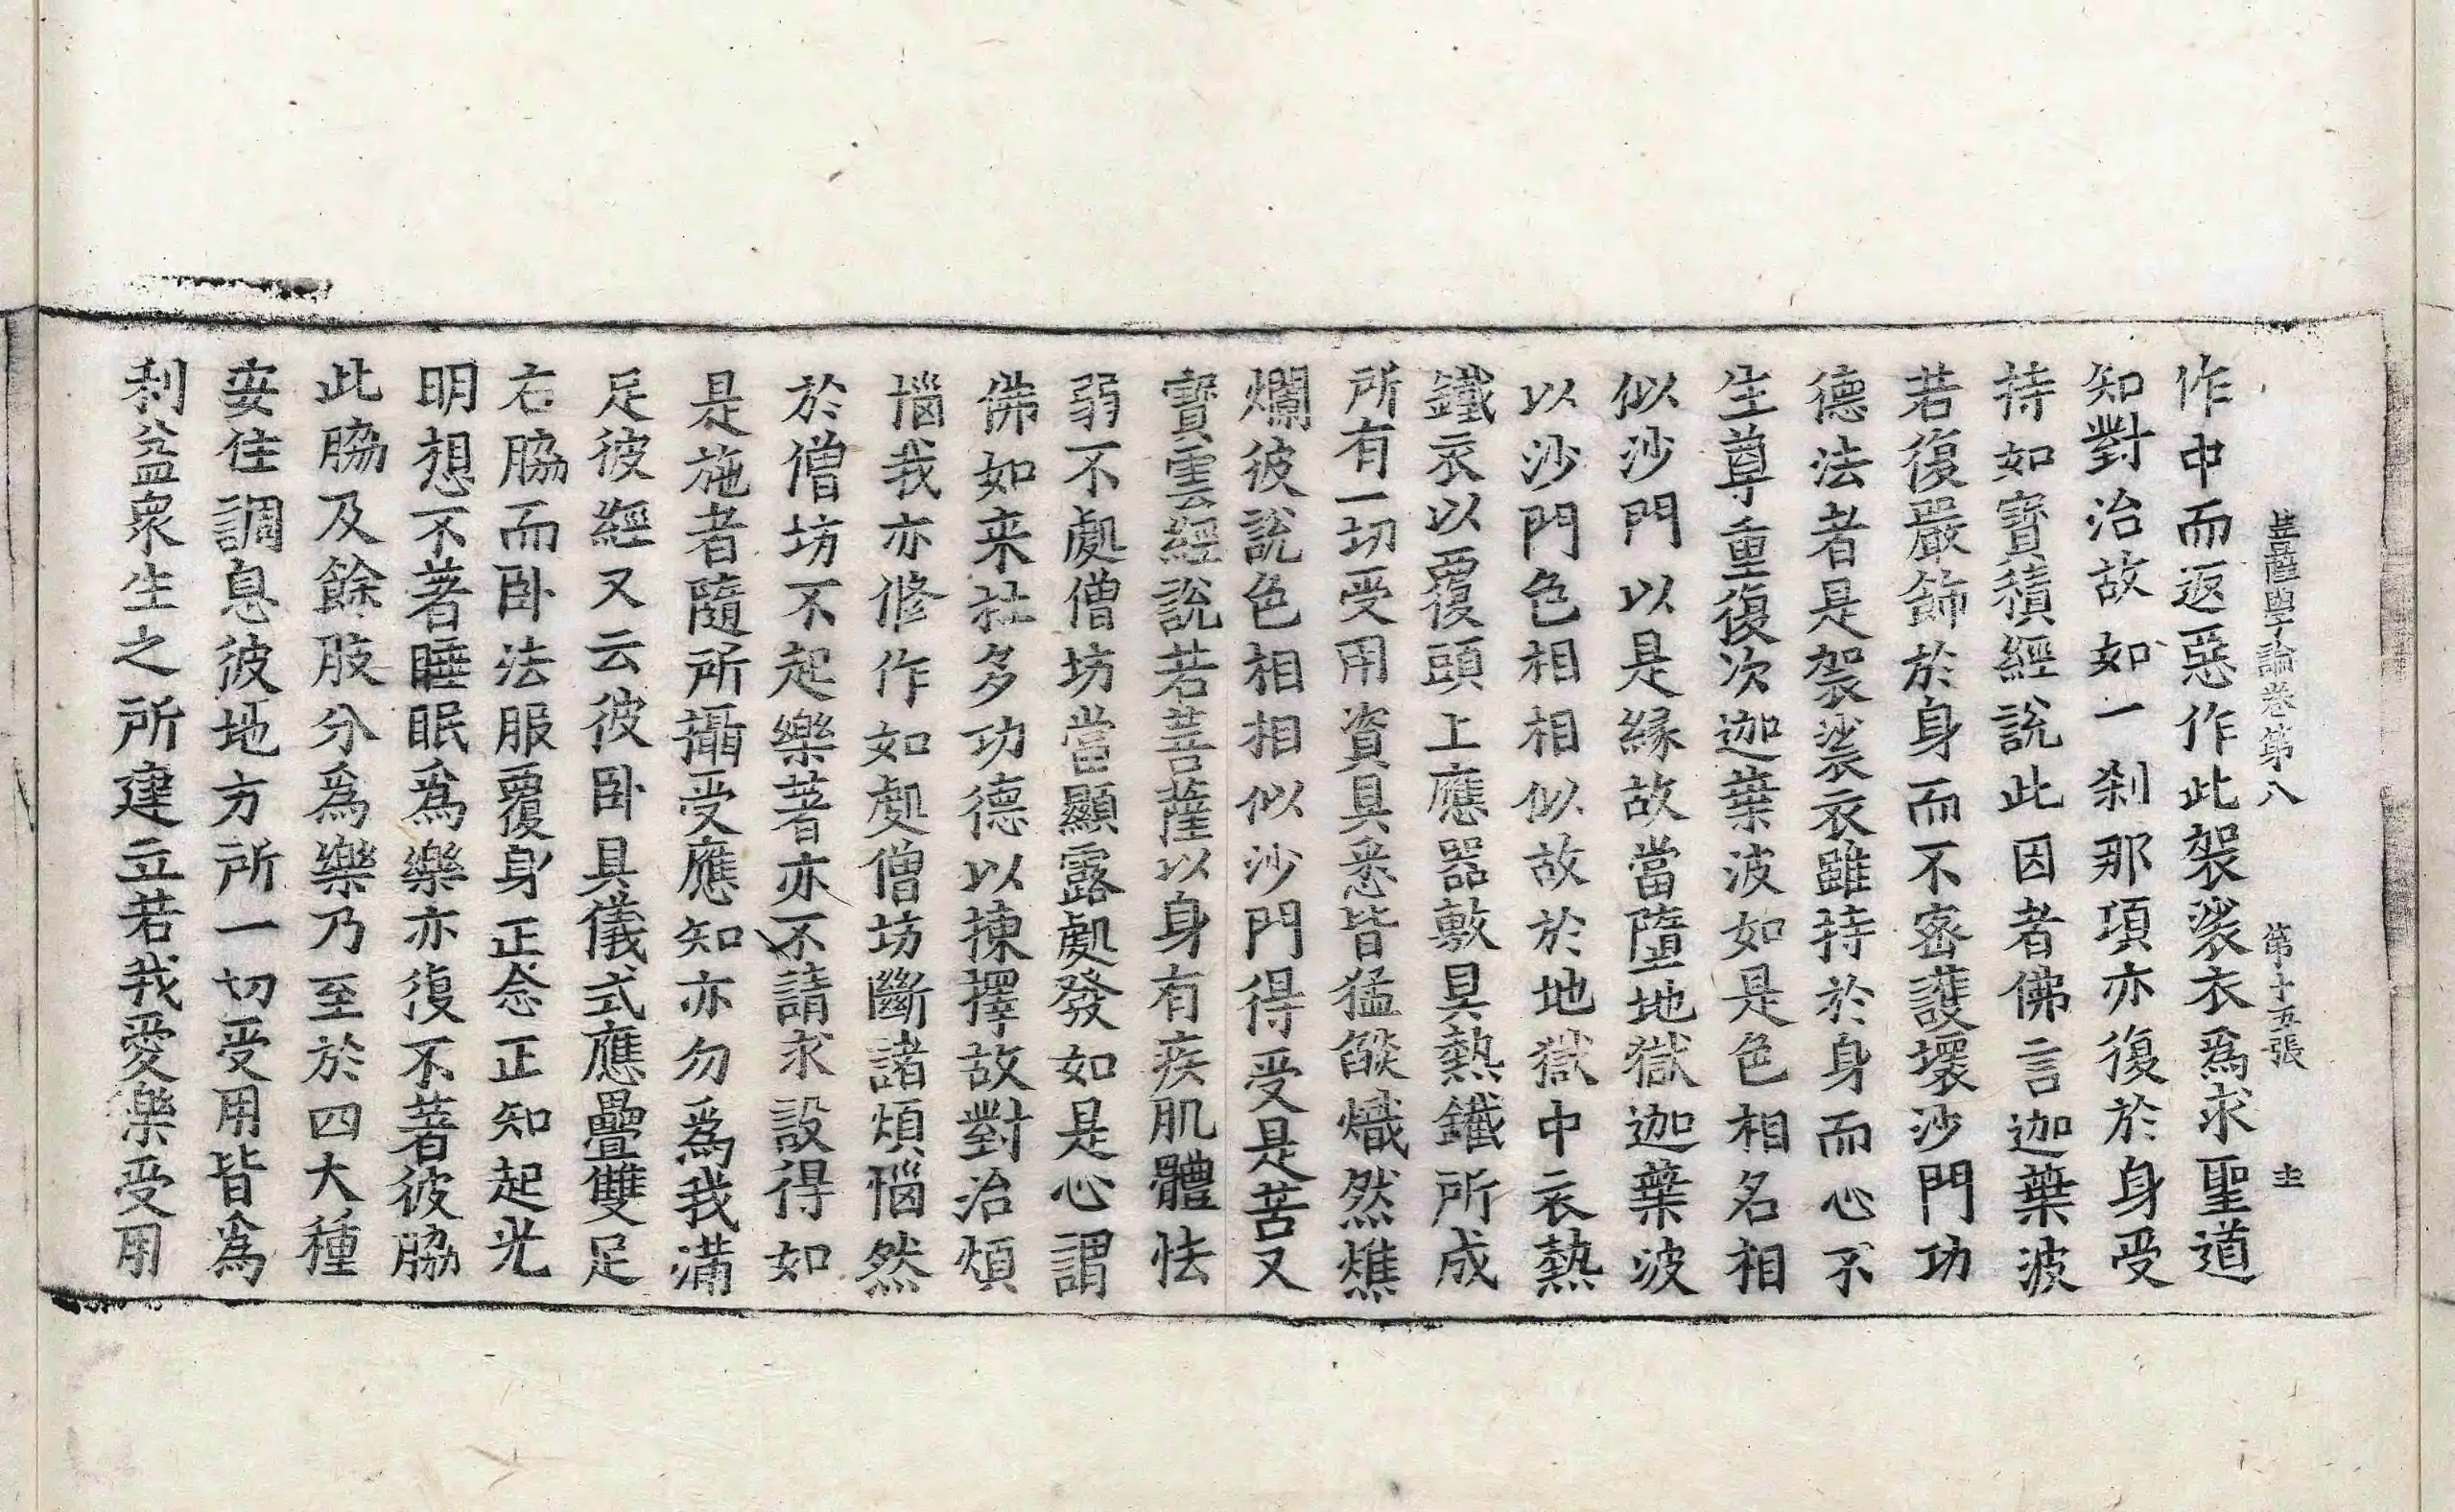 菩薩學論卷第八 第十五張 主
作中而返惡作此袈裟衣爲求聖道
知對治故如一刹那項亦復於身受
持如寶積經說此因者佛言迦葉波
若復嚴飾於身而不密護壞沙門功
德法者是袈裟衣雖持於身而心不
生尊重復次迦葉波如是色相名相
似沙門以是緣故當墮地獄迦葉波
以沙門色相相似故於地獄中衣熱
鐵衣以覆頭上應器敷具熱鐵所成
所有一切受用資具悉皆猛燄熾然燋
爛彼說色相相似沙門得受是苦又
寶雲經說若菩薩以身有疾肌體怯
弱不處僧坊當顯露處發如是心謂
佛如来社多功德以揀擇故對治煩
惱我亦修作如處僧坊斷諸煩惱然
於僧坊不起樂著亦不請求設得如
是施者隨所攝受應知亦勿爲我滿
足彼經又云彼卧具儀式應疊雙足
右脇而卧法服覆身正念正知起光
明想不著睡眠爲樂亦復不著彼脇
此脇及餘肢分爲樂乃至於四大種
安住調息彼地方所一切受用皆爲
利益衆生之所建立若我愛樂受用